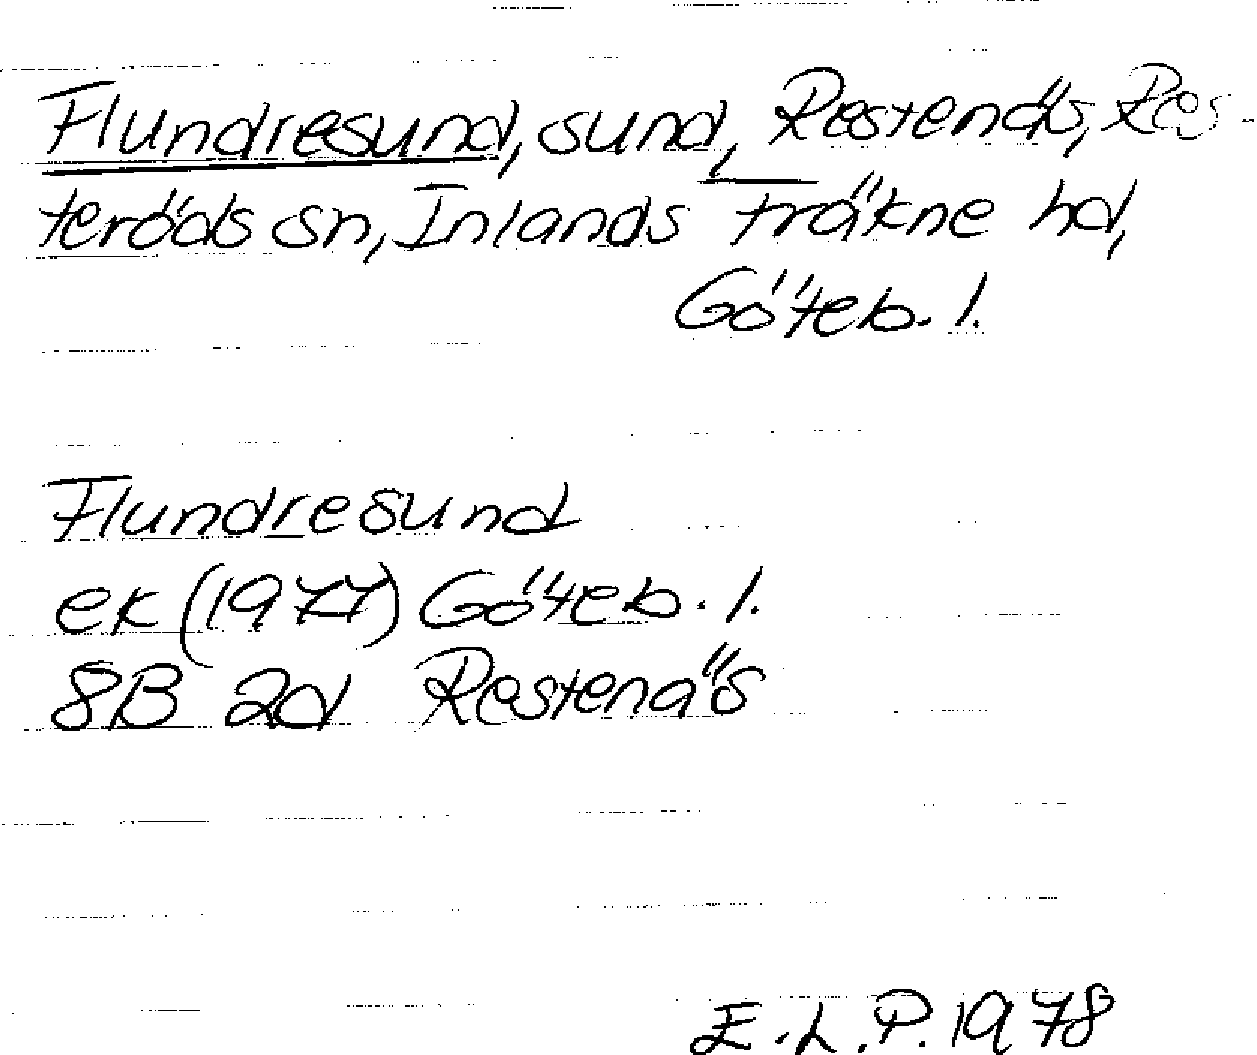 Flundresund, sund, Restenäs, Res-
teröds sn, Inlands Fräkne hd,
Göteb. l.
Flundresund
ek (1977) Göteb. l.
8B 2d Restenäs
E.L.P. 1978